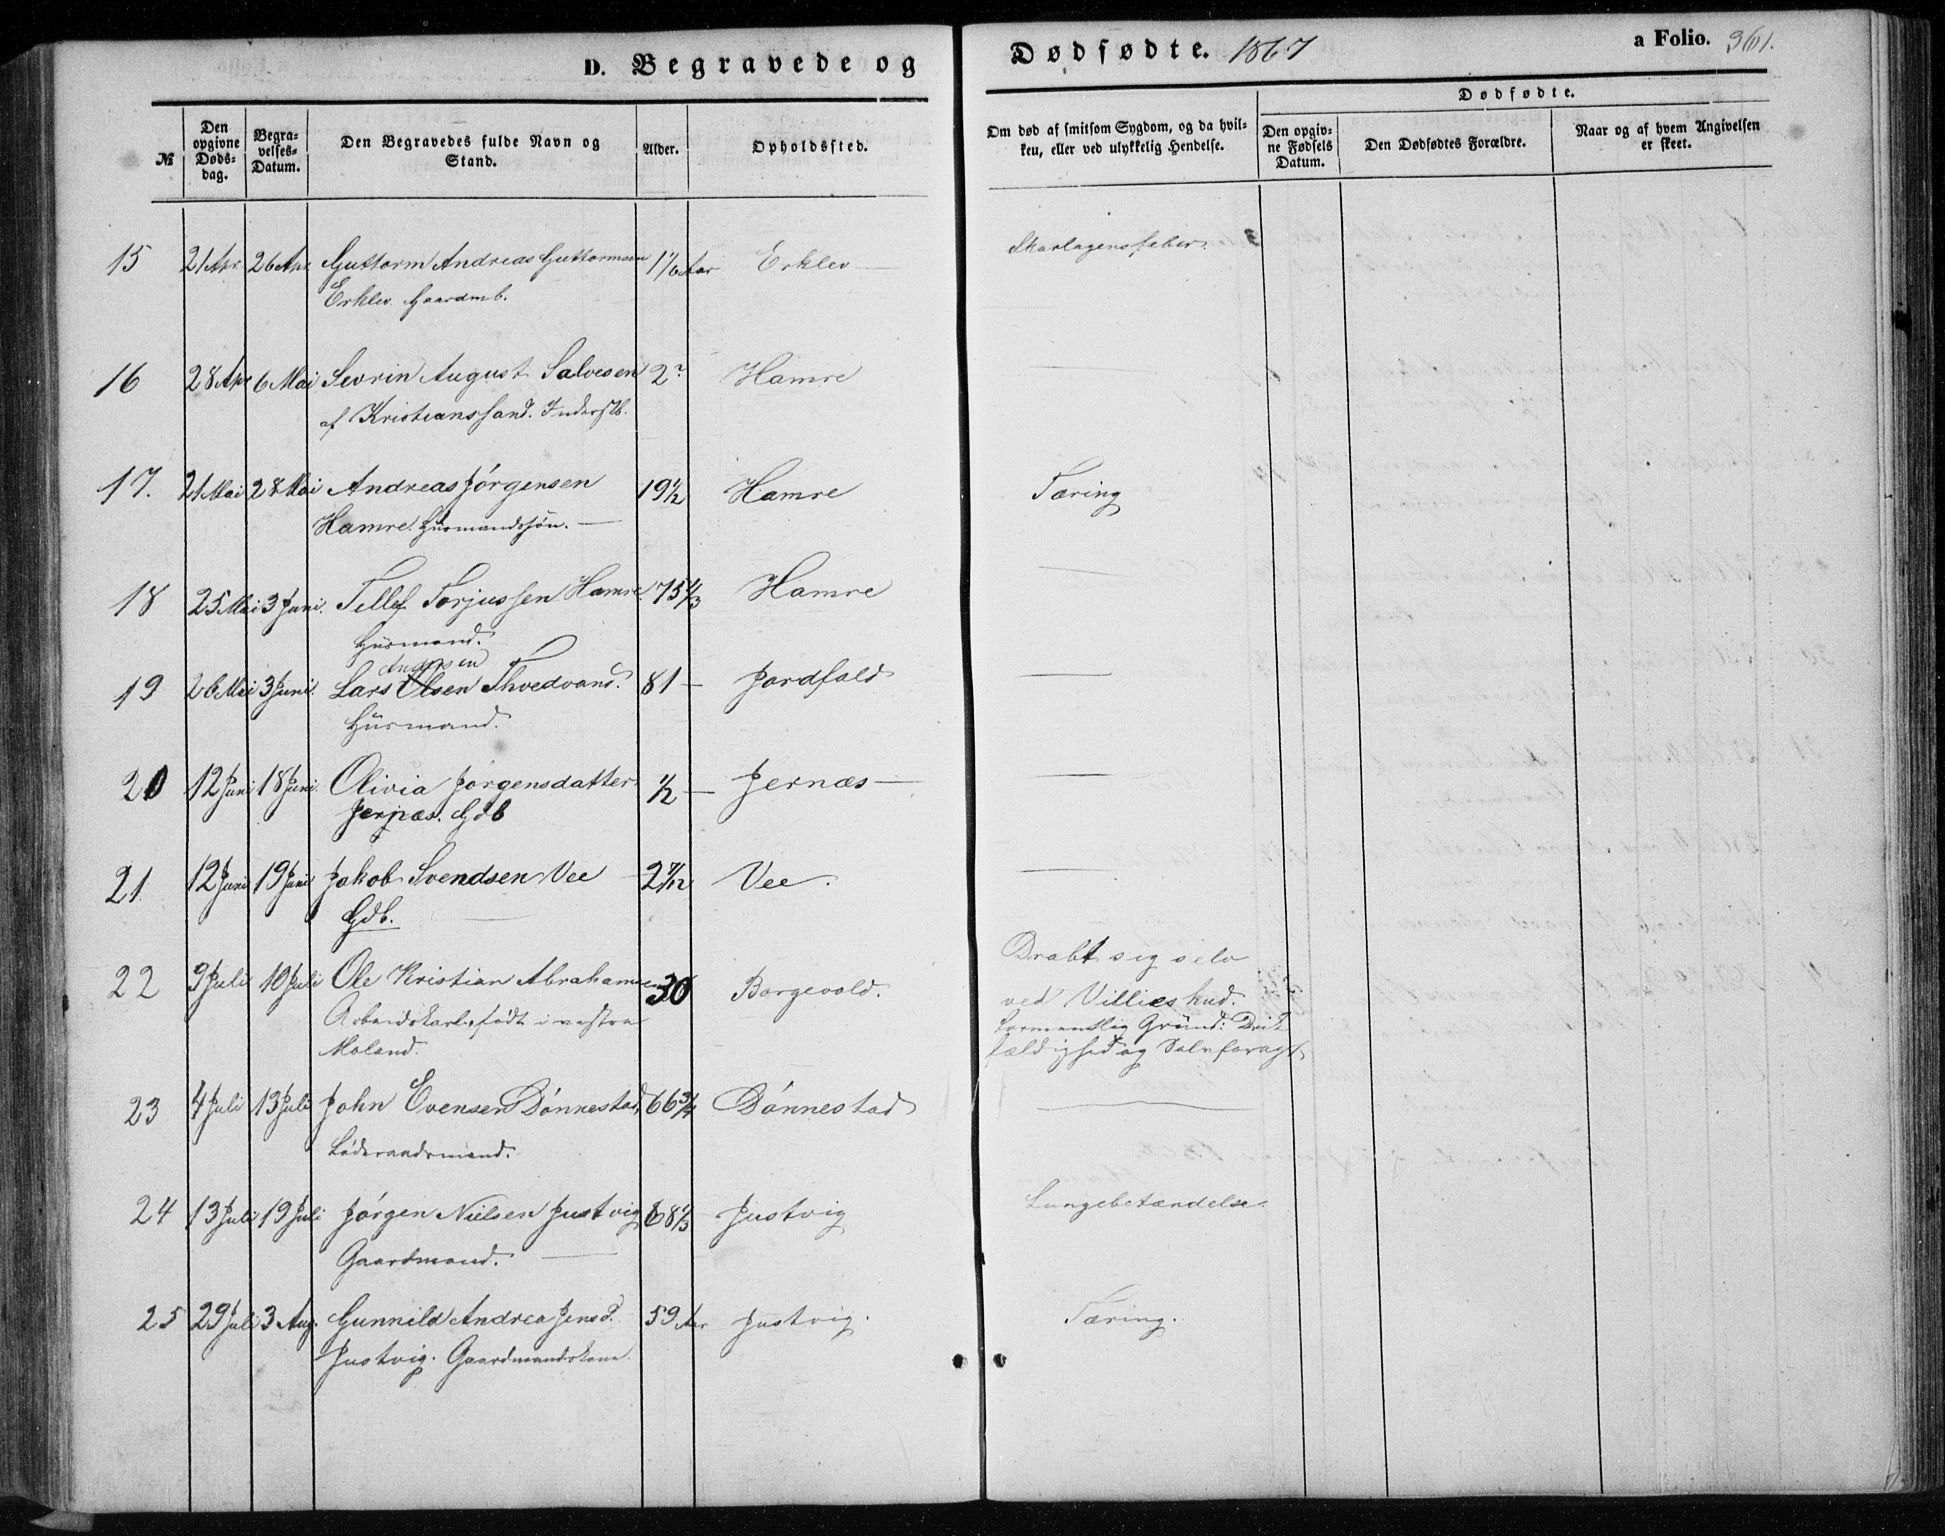 D. Begravede og Dødsfødte. 1867 a Folio. 361.
№ | Den opgivne Døds-dag. | Begra-velses-Datum. | Den Begravedes fulde Navn og Stand. | Alder. | Opholdssted. | Om død af smitsom Sygdom, og da hvil-ken, eller ved ulykkelig Hendelse. | Dødfødte. | Den opgiv-ne Fødsels Datum. | Den Dødfødtes Forældre. | Naar og af hvem Angivelsen er skeet.
15 21 Apr. 26 Apr. Guttorm Andreas Guttormsen 1 1/6 Aar Erklev — Skarlagensfeber.
Erklev. Gaardmb.
16 28 Apr 6 Mai Sevrin August Salvesen 2 Hamre —
af Kristianssand. Inderstb.
17. 21 Mai 28 Mai Andreas Jörgensen 19 1/2 Hamre Tæring
Hamre. Husmandssön. —
18 25 Mai 3 Juni. Tellef Torjussen Hamre. 75 1/3 Hamre —
Husmand.
Andersen
19 26 Mai 3 Juni. Lars Olsen Thvedvand. 81 — Jordfald —
Husmand.
20 12 Juni 18 Juni. Olivia Jörgensdatter 1/2 — Jernæs — —
Jernæs. Gdb
21. 12 Juni 19 Juni Jakob Svendsen Vee 2 7/12 Vee. —
Gdb. —
22 9 Juli 10 Juli Ole Kristian Abrahamsen 30 Borgevold. Dræbt sig selv
ved Villieskud.
Arbeidskarl, født i vestra
Moland.
Formentlig Grund: Drik
fældighed og Selvforagt
23 4 Juli 13 Juli John Evensen Dönnestad, 66 3/4 Dönnestad —
Föderaadsmand.
24 13 Juli 19 Juli Jörgen Nielsen Justvig 68 1/3 Justvig Lungebetændelse.
Gaardmand. —
25 29 Juli 3 Aug. Gunnild Andrea Jensd. 59 Aar Justvig. Tæring.
Justvig. Gaardmandskone.